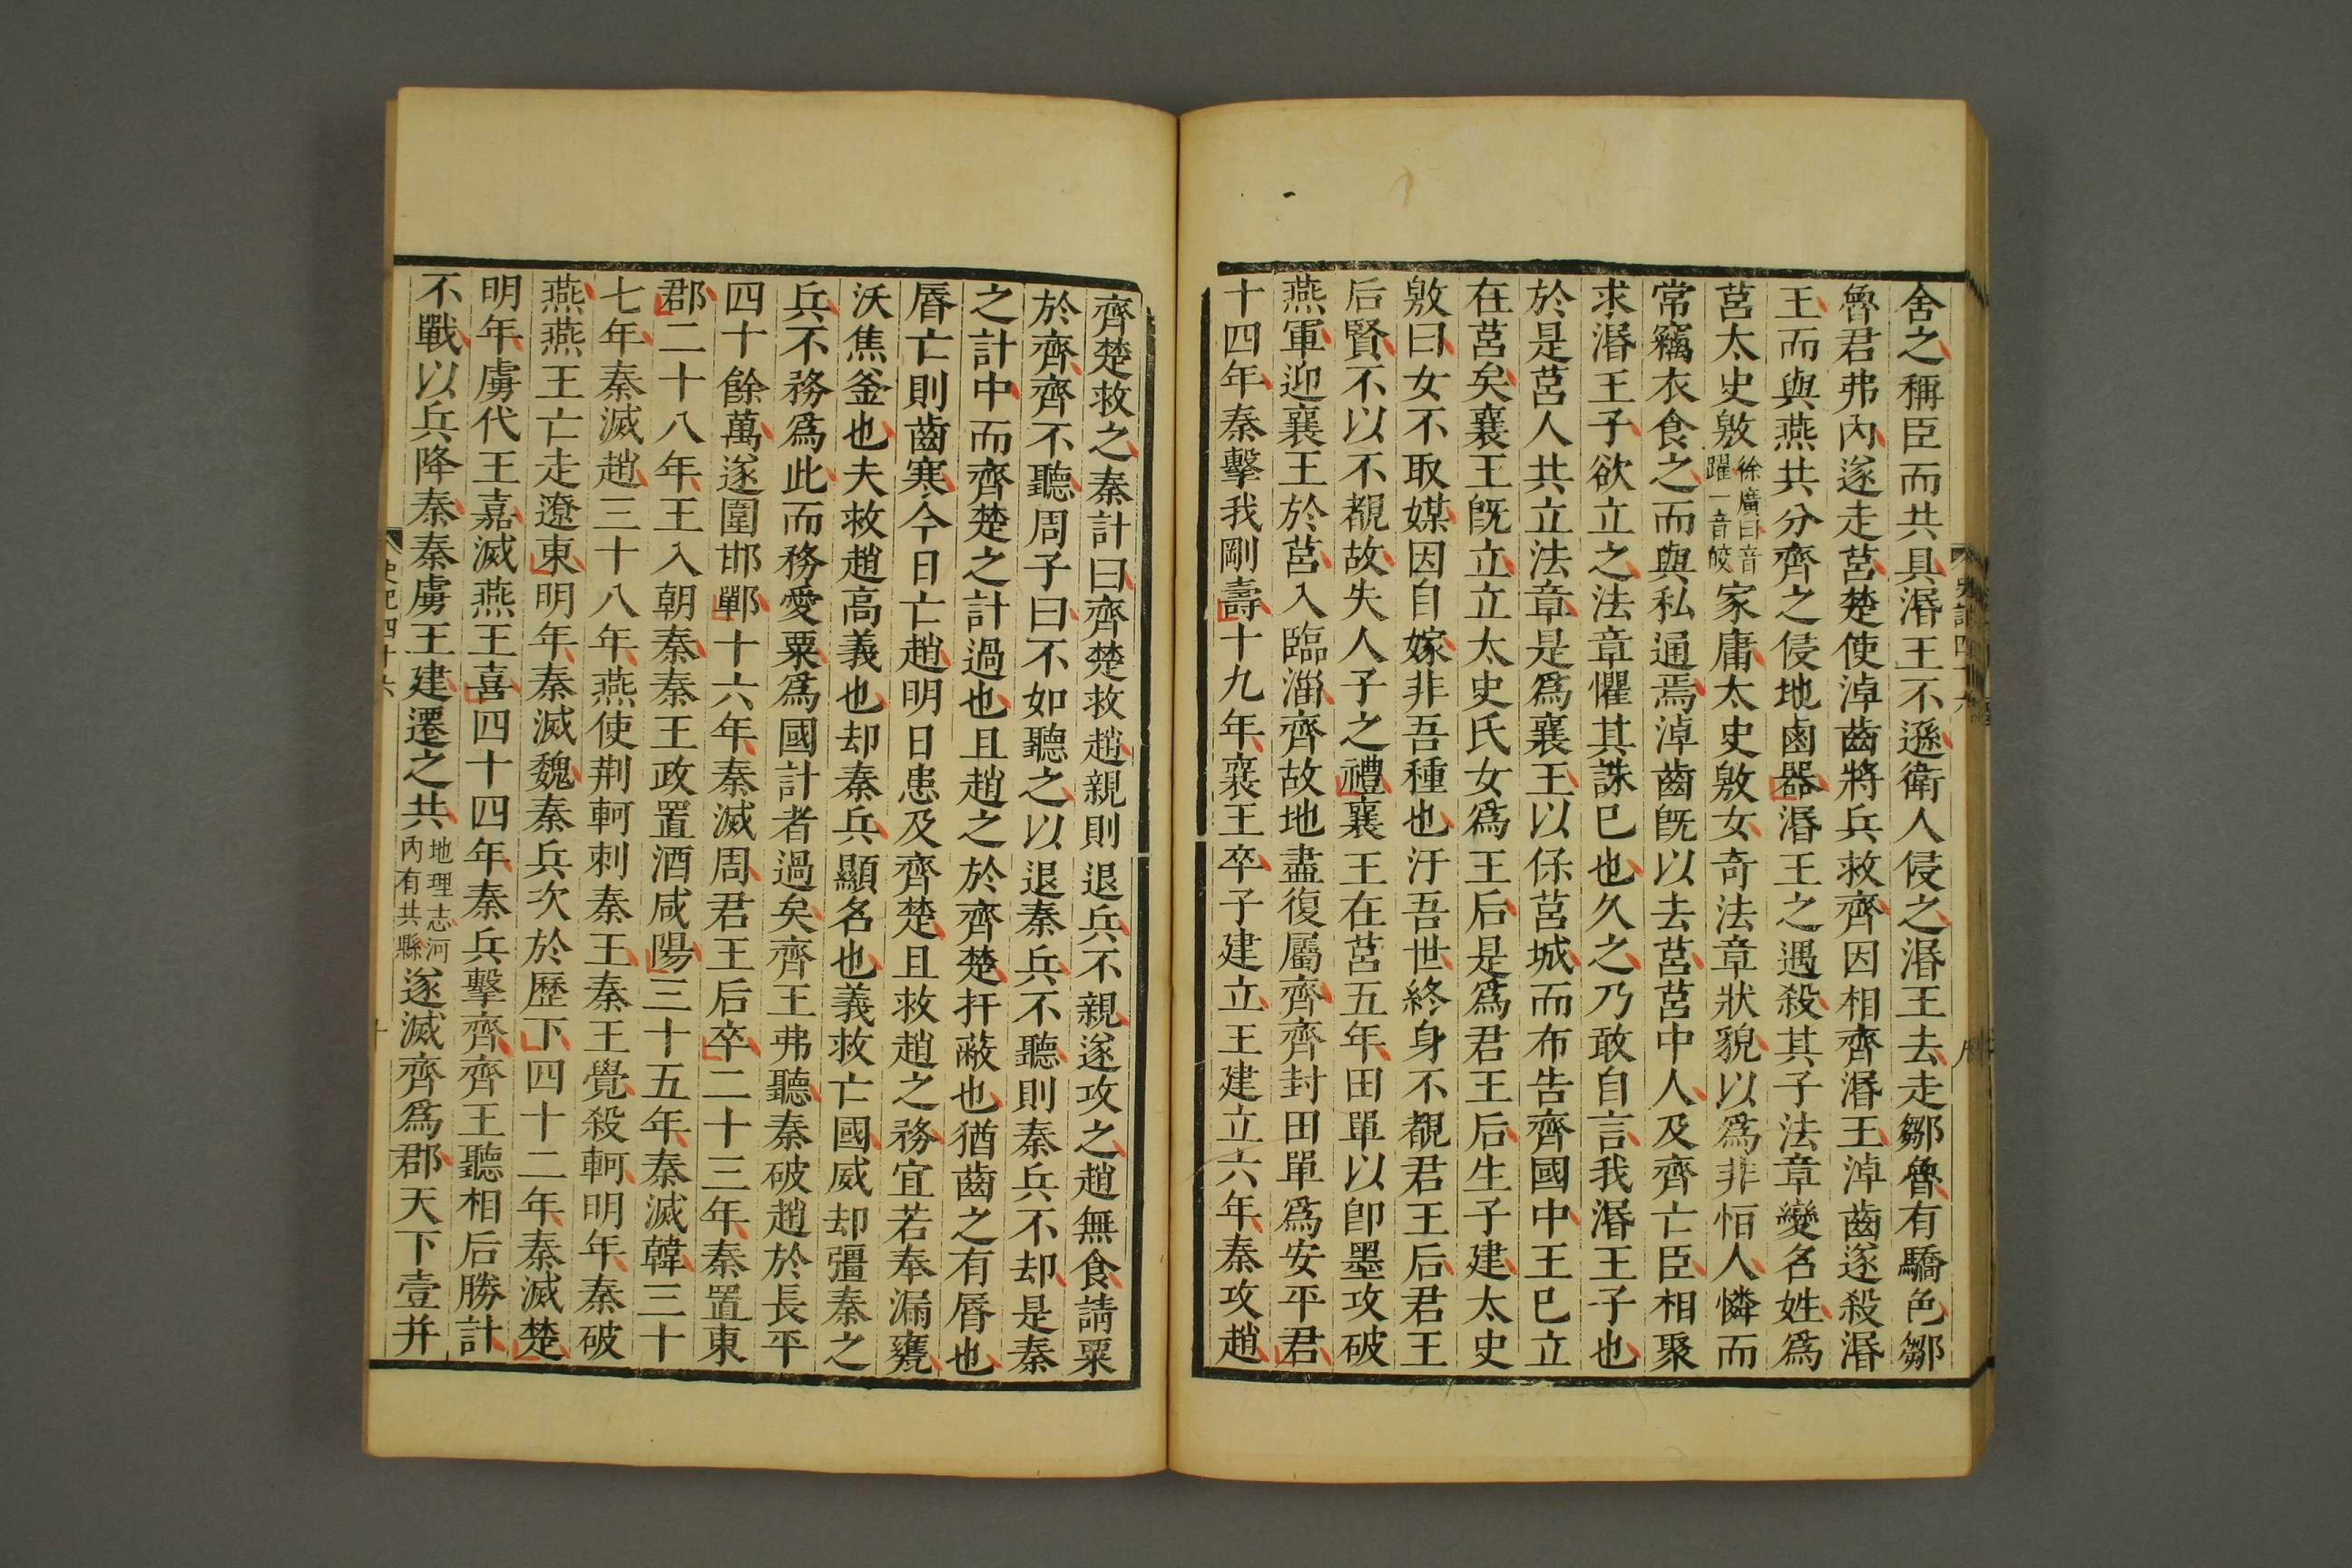 舍之稱臣而共具湣王不遜衛人侵之湣王去走鄒魯有驕色鄒
魯君弗內遂走莒楚使淖齒將兵救齊因相齊湣王淖齒遂殺湣
王而與燕共分齊之侵地鹵器湣王之遇殺其子法章變名姓爲
莒太史敫徐廣曰音躍一音皎家庸太史敫女奇法章狀貌以爲非恒人憐而
常竊衣食之而與私通焉淖齒既以去莒莒中人及齊亡臣相聚
求湣王子欲立之法章懼其誅已也久之乃敢自言我湣王子也
於是莒人共立法章是爲襄王以保莒城而布告齊國中王已立
在莒矣襄王既立立太史氏女爲王后是爲君王后生子建太史
敫曰女不取媒因自嫁非吾種也汙吾世終身不覩君王后君王
后賢不以不覩故失人子之禮襄王在莒五年田單以卽墨攻破
燕軍迎襄王於莒入臨淄齊故地盡復屬齊齊封田單爲安平君
十四年秦擊我剛壽十九年襄王卒子建立王建立六年秦攻趙
齊楚救之秦計曰齊楚救趙親則退兵不親遂攻之趙無食請粟
於齊齊不聽周子曰不如聽之以退秦兵不聽則秦兵不却是秦
之計中而齊楚之計過也且趙之於齊楚扞蔽也猶齒之有脣也
脣亡則齒寒今日亡趙明日患及齊楚且救趙之務宜若奉漏甕
沃焦釜也夫救趙高義也却秦兵顯名也義救亡國威却彊秦之
兵不務爲此而務愛粟爲國計者過矣齊王弗聽秦破趙於長平
四十餘萬遂圍邯鄲十六年秦滅周君王后卒二十三年秦置東
郡二十八年王入朝秦秦王政置酒咸陽三十五年秦滅韓三十
七年秦滅趙三十八年燕使荆軻刺秦王秦王覺殺軻明年秦破
燕燕王亡走遼東明年秦滅魏秦兵次於歷下四十二年秦滅楚
明年虜代王嘉滅燕王喜四十四年秦兵擊齊齊王聽相后勝計
不戰以兵降秦秦虜王建遷之共地理志河內有共縣遂滅齊爲郡天下壹并
史記四十六
十